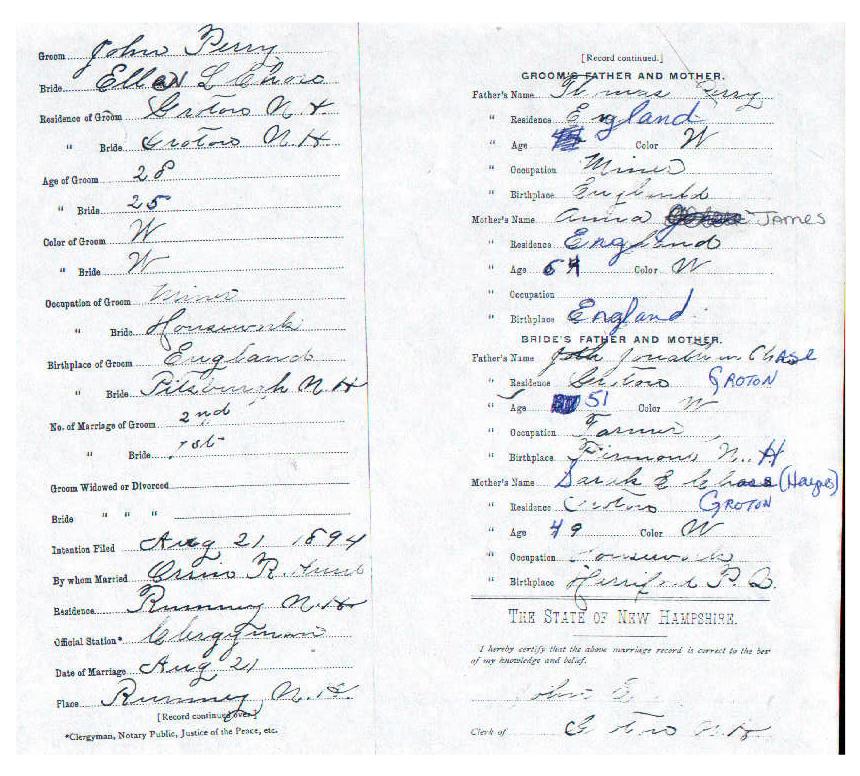 Groom John Perry
Bride Ellen L Chase
Residence of Groom Groton N H
" Bride Groton N. H.
Age of Groom 28
" Bride 25
Color of Groom W
" Bride W
Occupation of Groom Miner
" Bride Housework
Birthplace of Groom England
" Bride Pilsburgh N H
No. of Marriage of Groom 2nd
" Bride 1st
Groom Widowed or Divorced
Bride " " "
Intention Filed Aug 21 1894
By whom Married R.
Residence Rumney N. H.
Official Station* Clergyman
Date of Marriage Aug 21
Place Rumney, N. H.
[Record continued over]
*Clergyman, Notary Public, Justice of the Peace, etc.
[Record continued.]
GROOM'S FATHER AND MOTHER.
Father's Name Thomas Perry
" Residence England
" Age Color W
" Occupation Miner
" Birthplace England
Mother's Name Anna JAMES
" Residence England
" Age 64 Color W
" Occupation
" Birthplace England
BRIDE'S FATHER AND MOTHER.
Father's Name Jonathan Chase
" Residence Groton GROTON
" Age 51 Color W
" Occupation Farmer
" Birthplace N. H
Mother's Name Sarah E Chase (Haynes)
" Residence Groton GROTON
" Age 49 Color W
" Occupation Housework
" Birthplace P. Q.
THE STATE OF NEW HAMPSHIRE.
I hereby certify that the above marriage record is correct to the best
of my knowledge and belief.
John E
Clerk of Groton N H